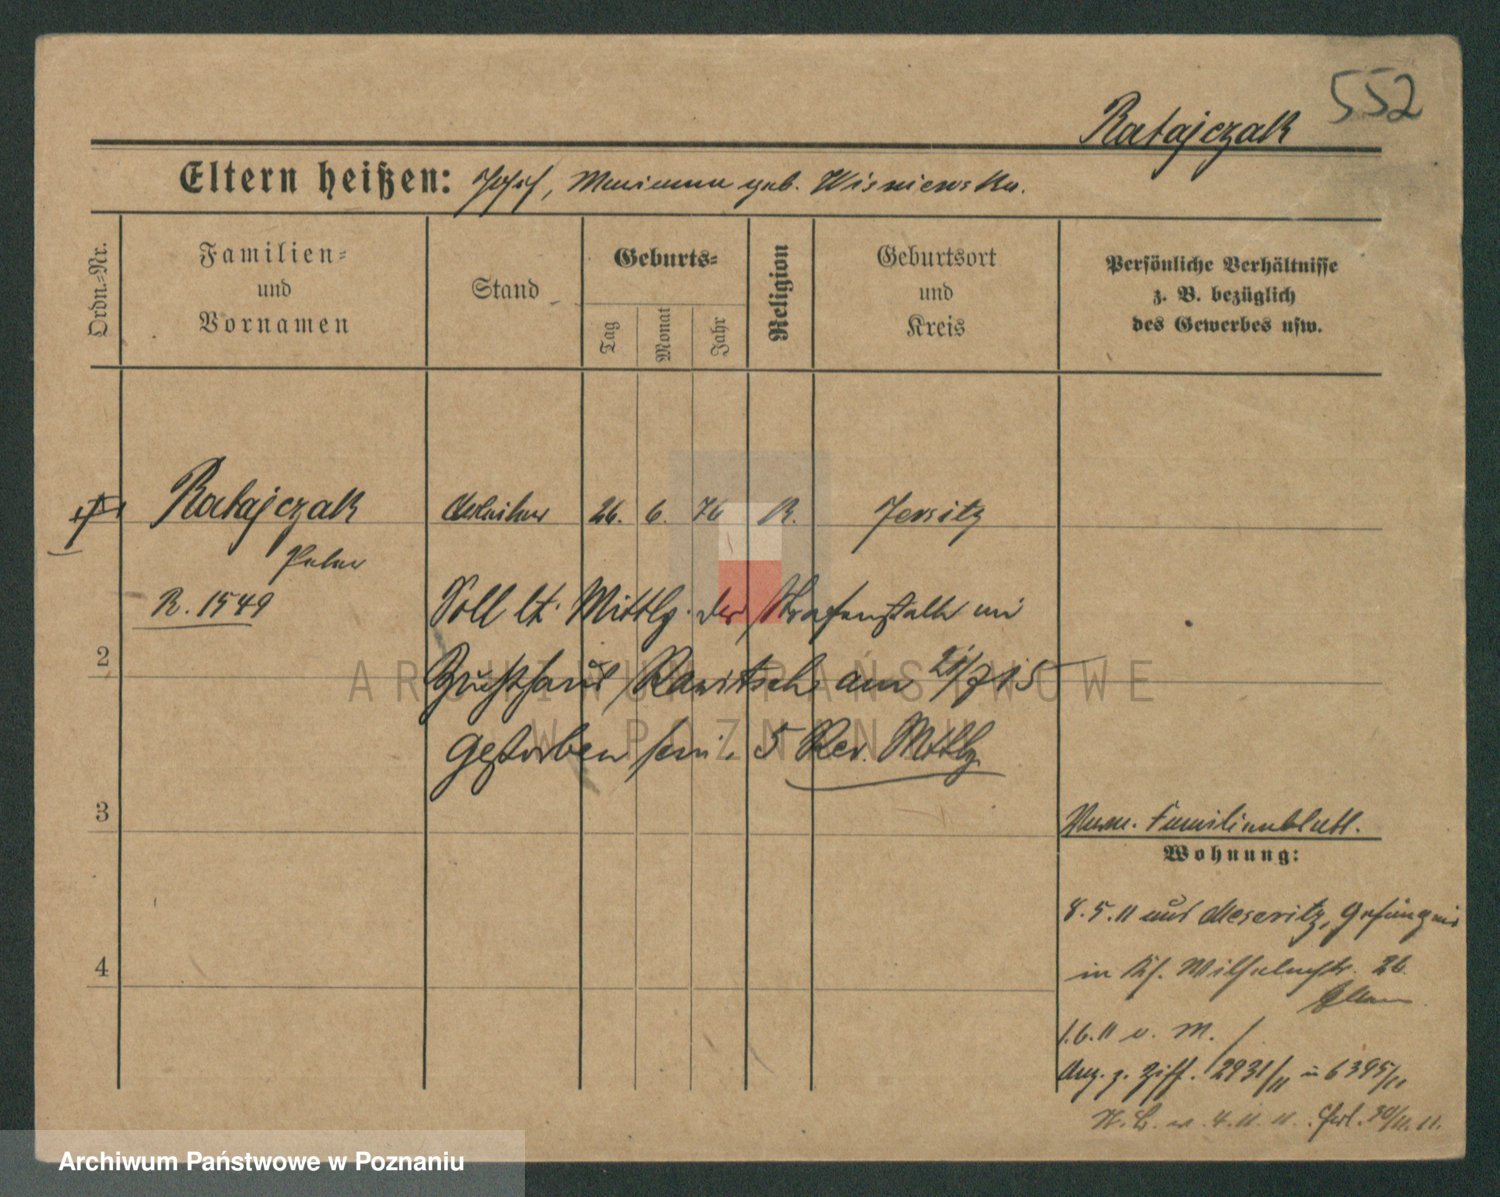 552
Ratajczak
Eltern heißen: Josef, Marianna geb. Wisniewska.
Ordn.-Nr.
Familien-
und
Vornamen
Stand
Geburts-
Tag
Monat
Jahr
Religion
Geburtsort
und
Kreis
Persönliche Verhältnisse
z. B. bezüglich
des Gewerbes usw.
Ratajczak
Arbeiter
26.
6.
76
R.
Jersitz
Peter
R. 1549
Soll lt. Mittlg. der Strafanstalt im
2
Zuchthaus Rawitsch am 21/7 15
gestorben sein. 5 Rev. Mittlg.
3
Familienblatt.
Wohnung:
8.5.11 aus Meseritz, Gefängnis
4
in Wilhelmstr. 26
1.6.11 u. M.
Anz. z. Ziff. 2931/11 u 6395/11
4.11.11. 30/11.11.
ARCHIWUM PAŃSTWOWE
W POZNANIU
Archiwum Państwowe w Poznaniu